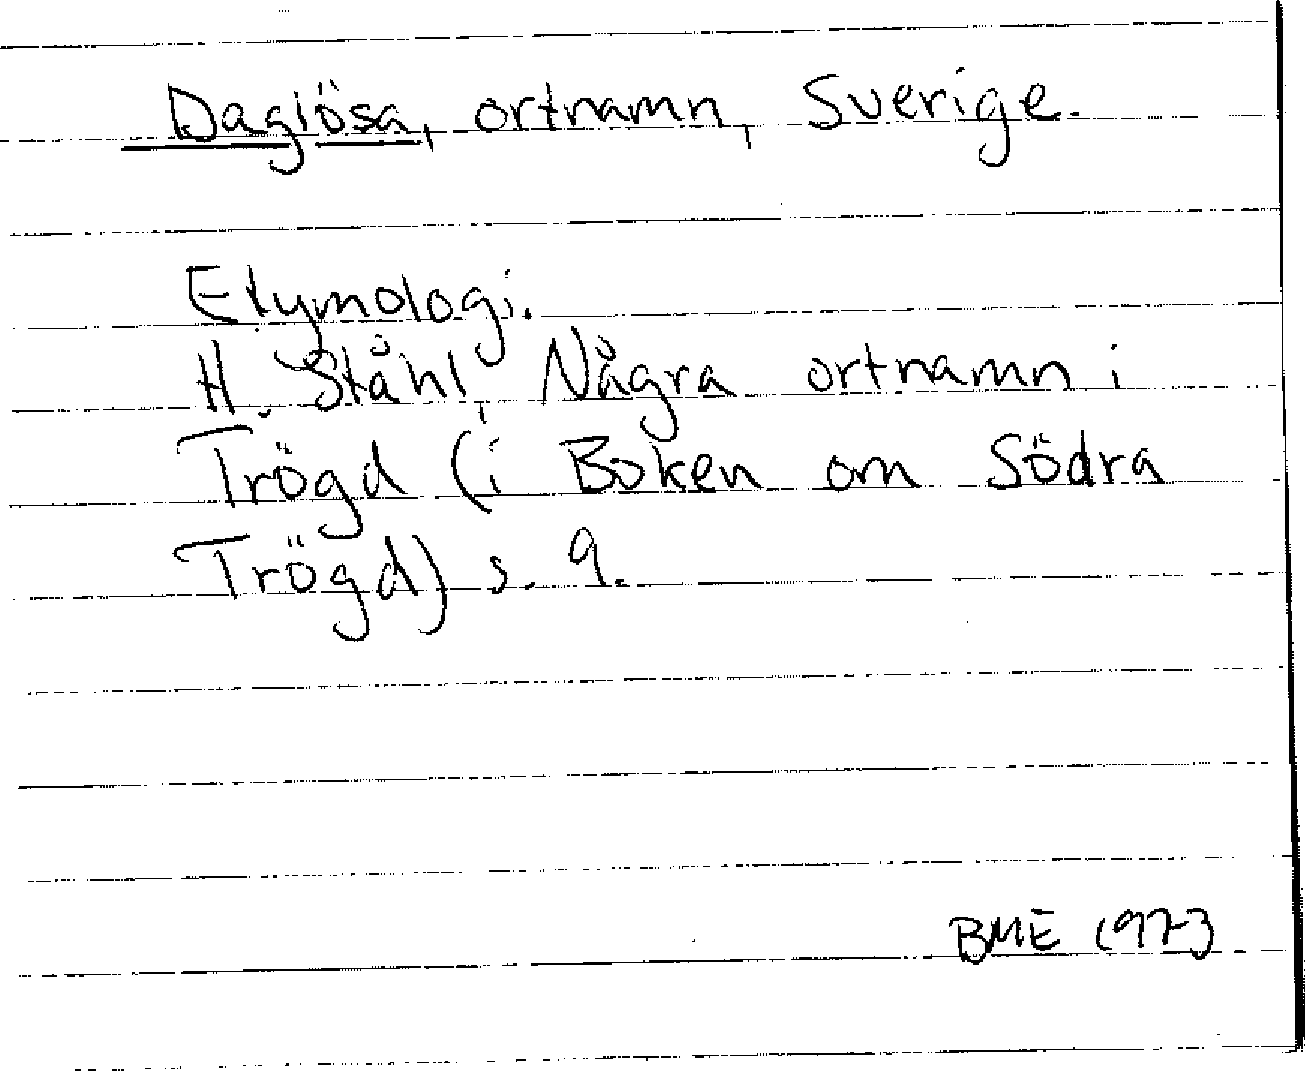 Daglösa, ortnamn, Sverige.
Etymologi.
H. Ståhl, Några ortnamn i
Trögd (i Boken om Södra
Trögd) s. 9.
BME 1973